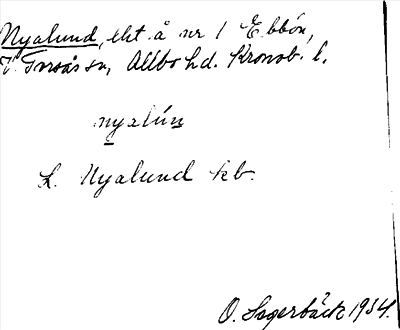 Nyalund, ekt å nr 1 Ebbón,
V. Torsås sn, Allbo hd. Kronob. l.
nyalún
L. Nyalund kb.
O. Sagerbäck 1934.